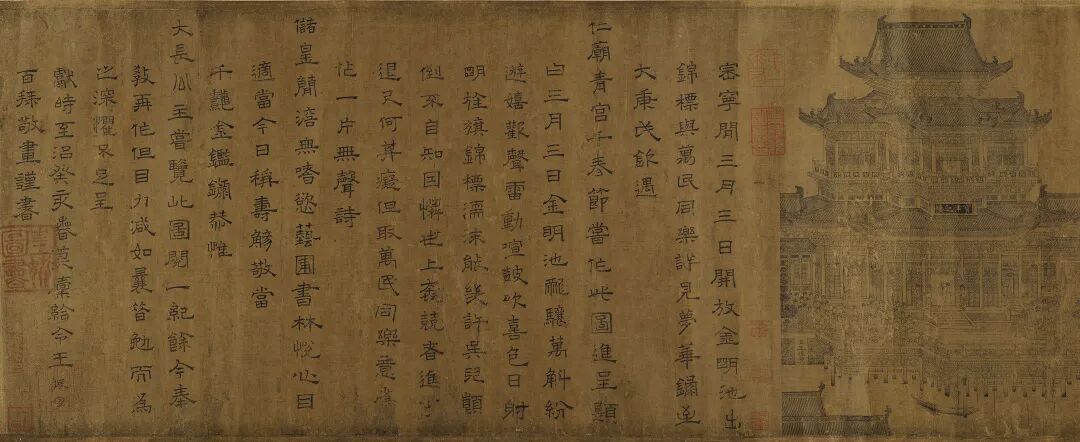 崇寧間三月三日開放金明池出
錦標與萬民同樂詳見夢華錄至
大庚戌欽遇
仁廟青宮千春節嘗作此圖進呈題
曰三月三日金明池龍驤萬斛紛
遊嬉歡聲雷動喧鼓吹喜色日射
明旌旗錦標濡沫能幾許吳兒顛
倒不自知因憐世上奔競者進寸
退尺何其癡但取萬民同樂意為
作一片無聲詩
儲皇簡澹無嗜慾藝圃書林悅心目
適當今日稱壽觴敬當
千龝金鑑錄恭惟
大長公主嘗覽此圖閱一紀餘今奉
教再作但目力減如曩昔勉而為
之深懼不足呈
獻時至治癸亥春莫廩給令王振鵬
百拜敬畫謹書